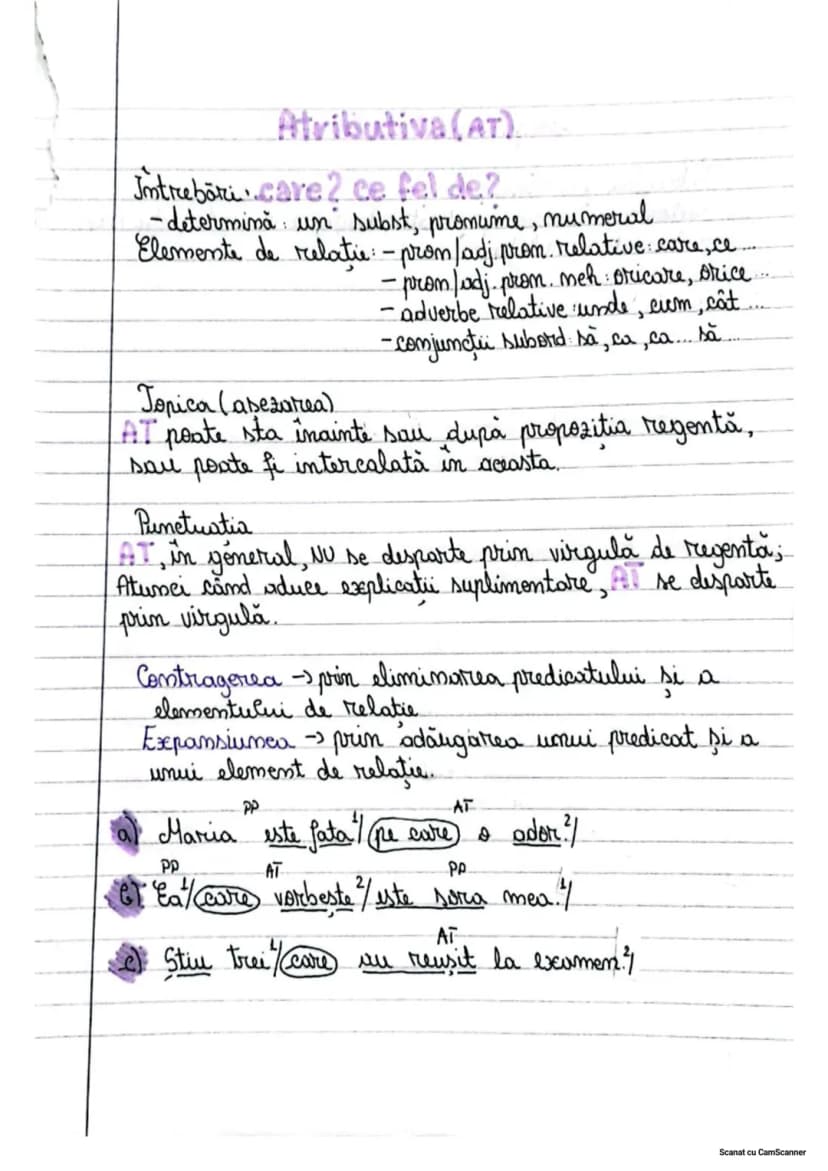 Atributiva (AT)
Întrebări: care? ce fel de?
- determină: un subst, pronume, numeral
Elemente de relație: - pron/adj. pron. relative: care, ce ...
- pron/adj. pron. neh: oricare, orice ...
- adverbe relative: unde, cum, cât ...
- conjuncții subord: să, ca, ca... să ...
Topica (asezarea)
AT poate sta înainte sau după propoziția regentă,
sau poate fi intercalată în aceasta.
Punctuatia
AT, în general, NU se desparte prin virgulă de regentă;
Atunci când aduce explicatii suplimentare, AT se desparte
prin virgulă.
Contragerea → prin eliminarea predicatului și a
elementului de relație
Expansiunea → prin adăugarea unui predicat și a
unui element de relație.
PP AT
a) Maria este fata 1/ pe care o ador. 2/
PP AT PP
b) Ea 1/ care vorbește 2/ este sora mea. 1/
AT
c) Știu trei 1/ care au reușit la examen. 2/
Scanat cu CamScanner